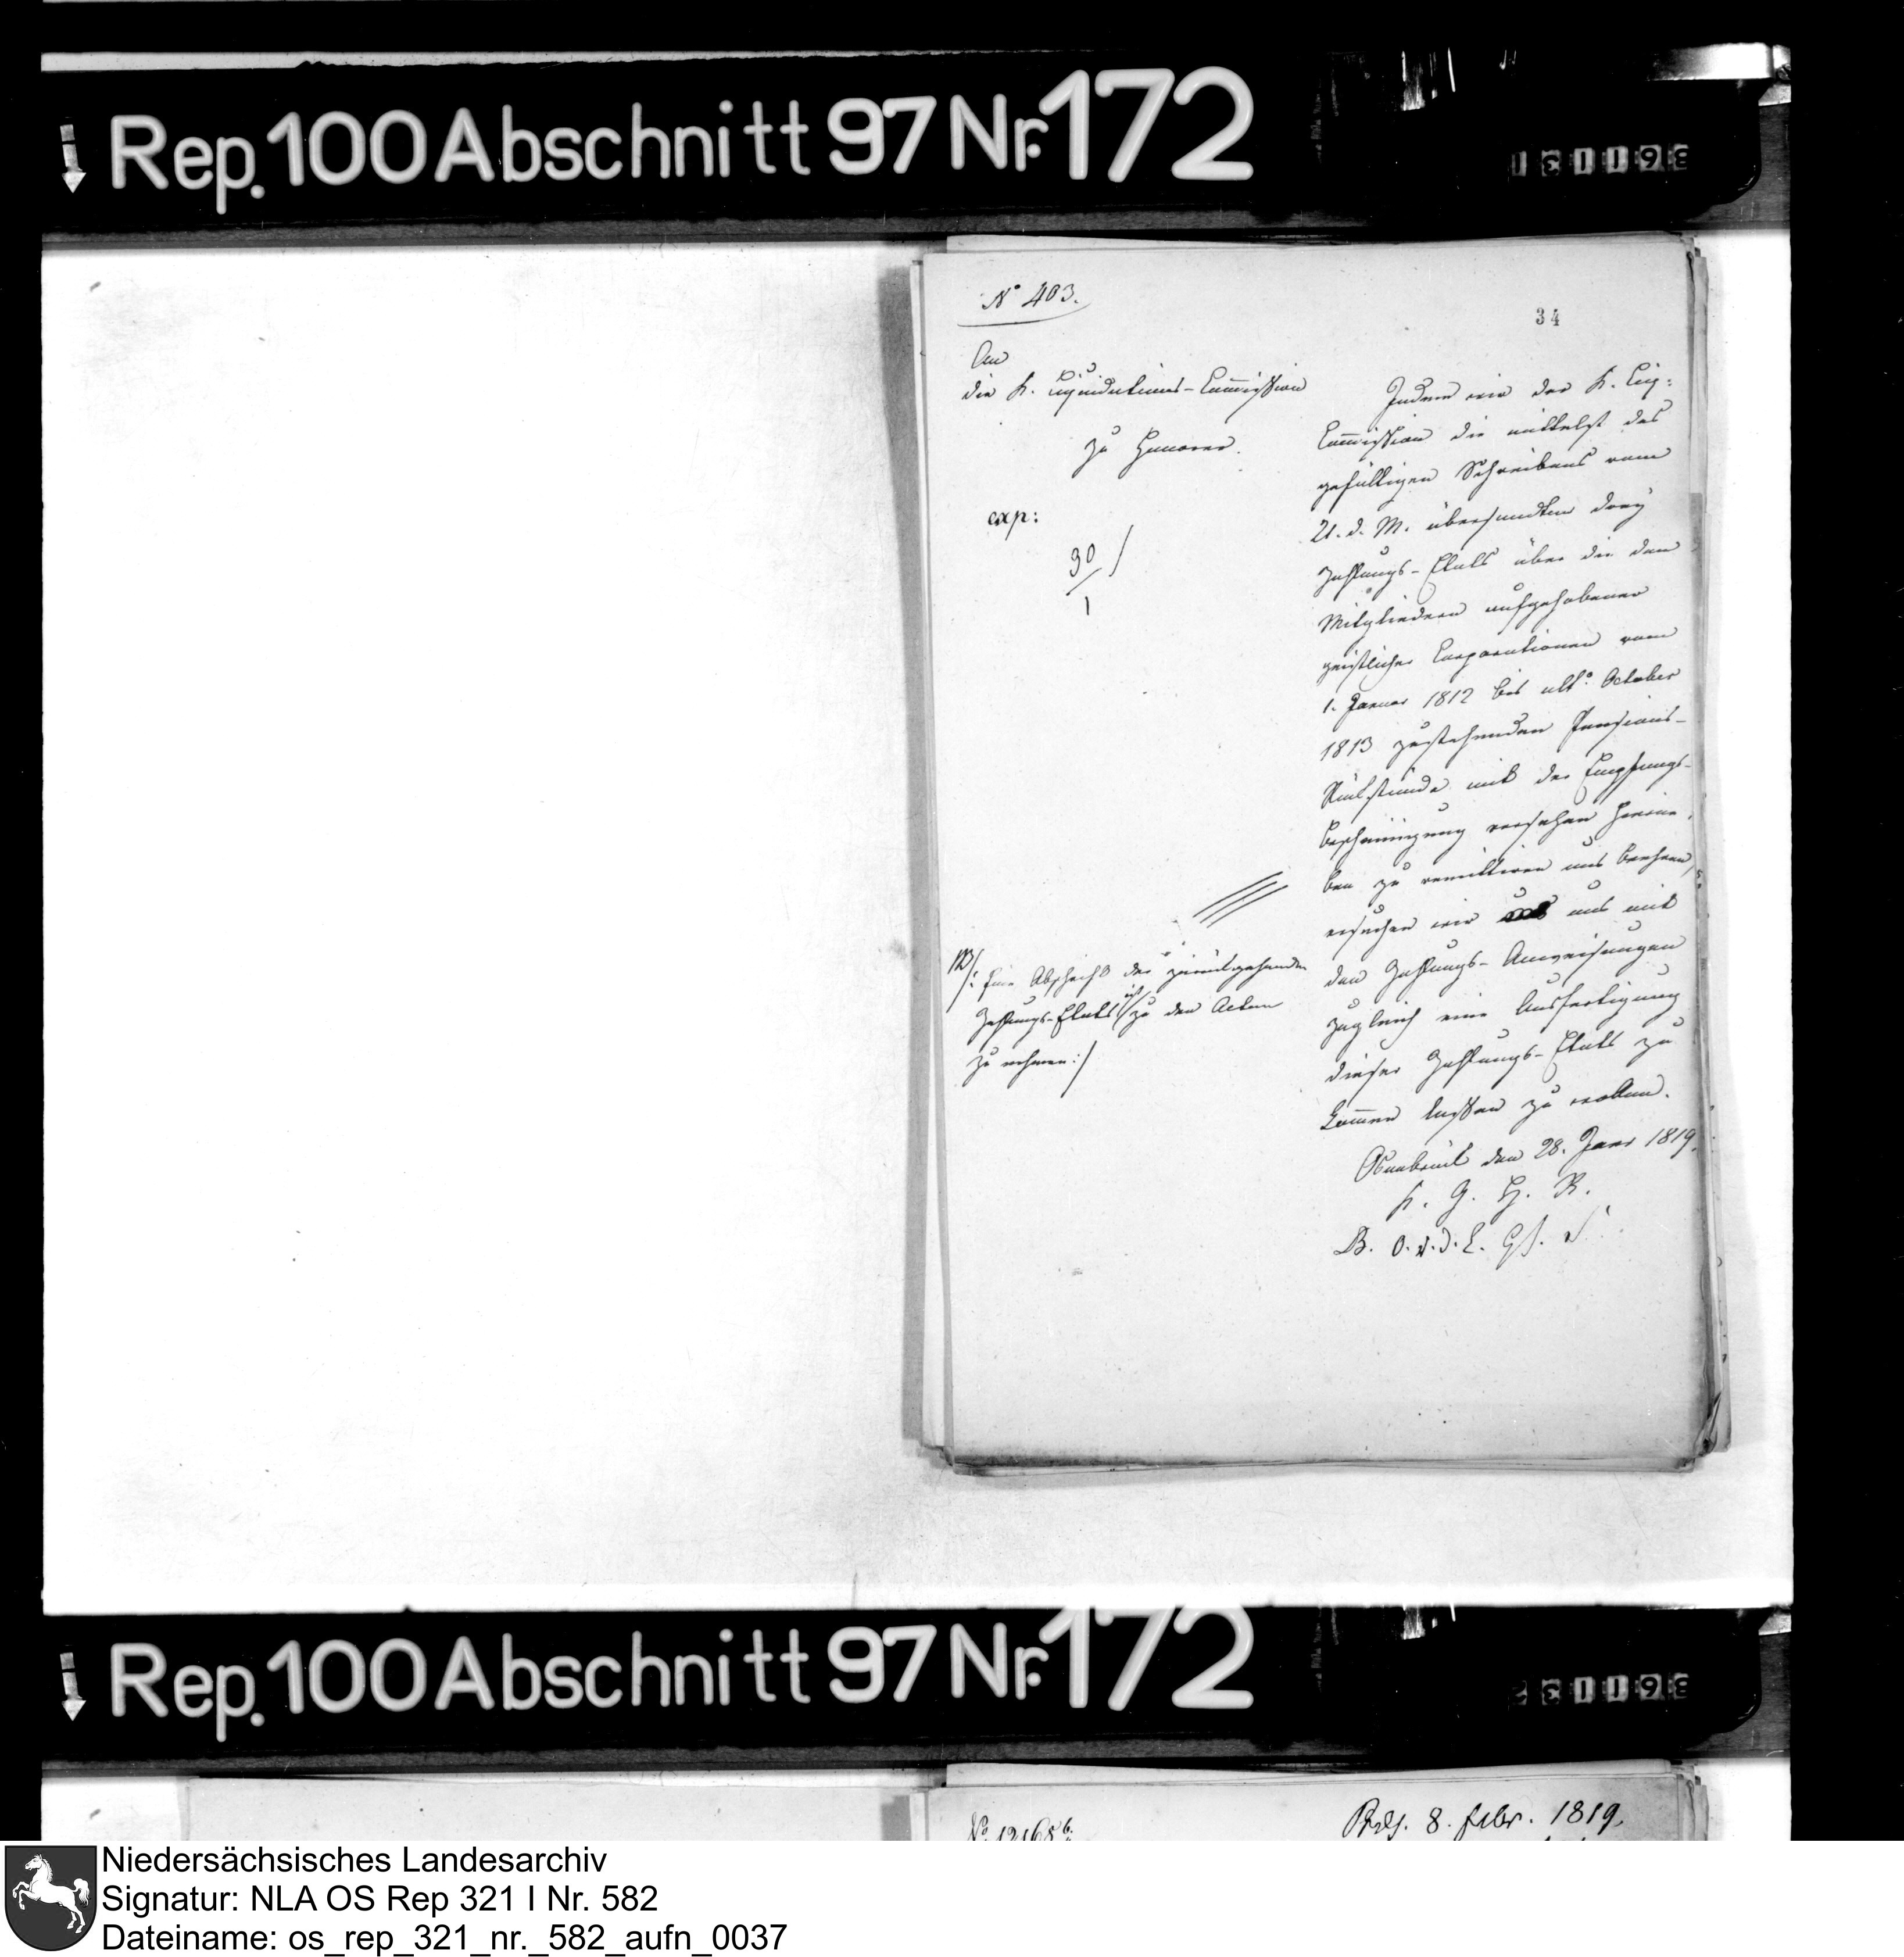 Rep. 100 Abschnitt 97 Nr. 172
361131
No 403.
34
An
die K. Liquidations-Commission
zu Hannover.
exp:
30/1
NB/: Eine Abschrift der zurückgehenden
Zahlungs-Etats ist zu den Acten
zu nehmen :/
Indem wir der K. Liq:
Commission die mittelst des
gefälligen Schreibens vom
21. d. M. übersandten drey
Zahlungs-Etats über die den
Mitgliedern aufgehobener
geistlicher Corporationen vom
1. Januar 1812 bis ult. October
1813 zustehenden Pensions-
Rückstände mit der Empfangs-
Bescheinigung versehen hierne-
ben zu remittiren uns beehren,
ersuchen wir uns mit
den Zahlungs-Anweisungen
zugleich eine Ausfertigung
dieser Zahlungs-Etats zu
kommen lassen zu wollen.
Osnabrück den 28. Janr 1819.
K. G. H. R.
B. O. v. d. L.
Rep. 100 Abschnitt 97 Nr. 172
361132
Präs. 8. Febr. 1819.
Niedersächsisches Landesarchiv
Signatur: NLA OS Rep 321 I Nr. 582
Dateiname: os_rep_321_nr._582_aufn_0037